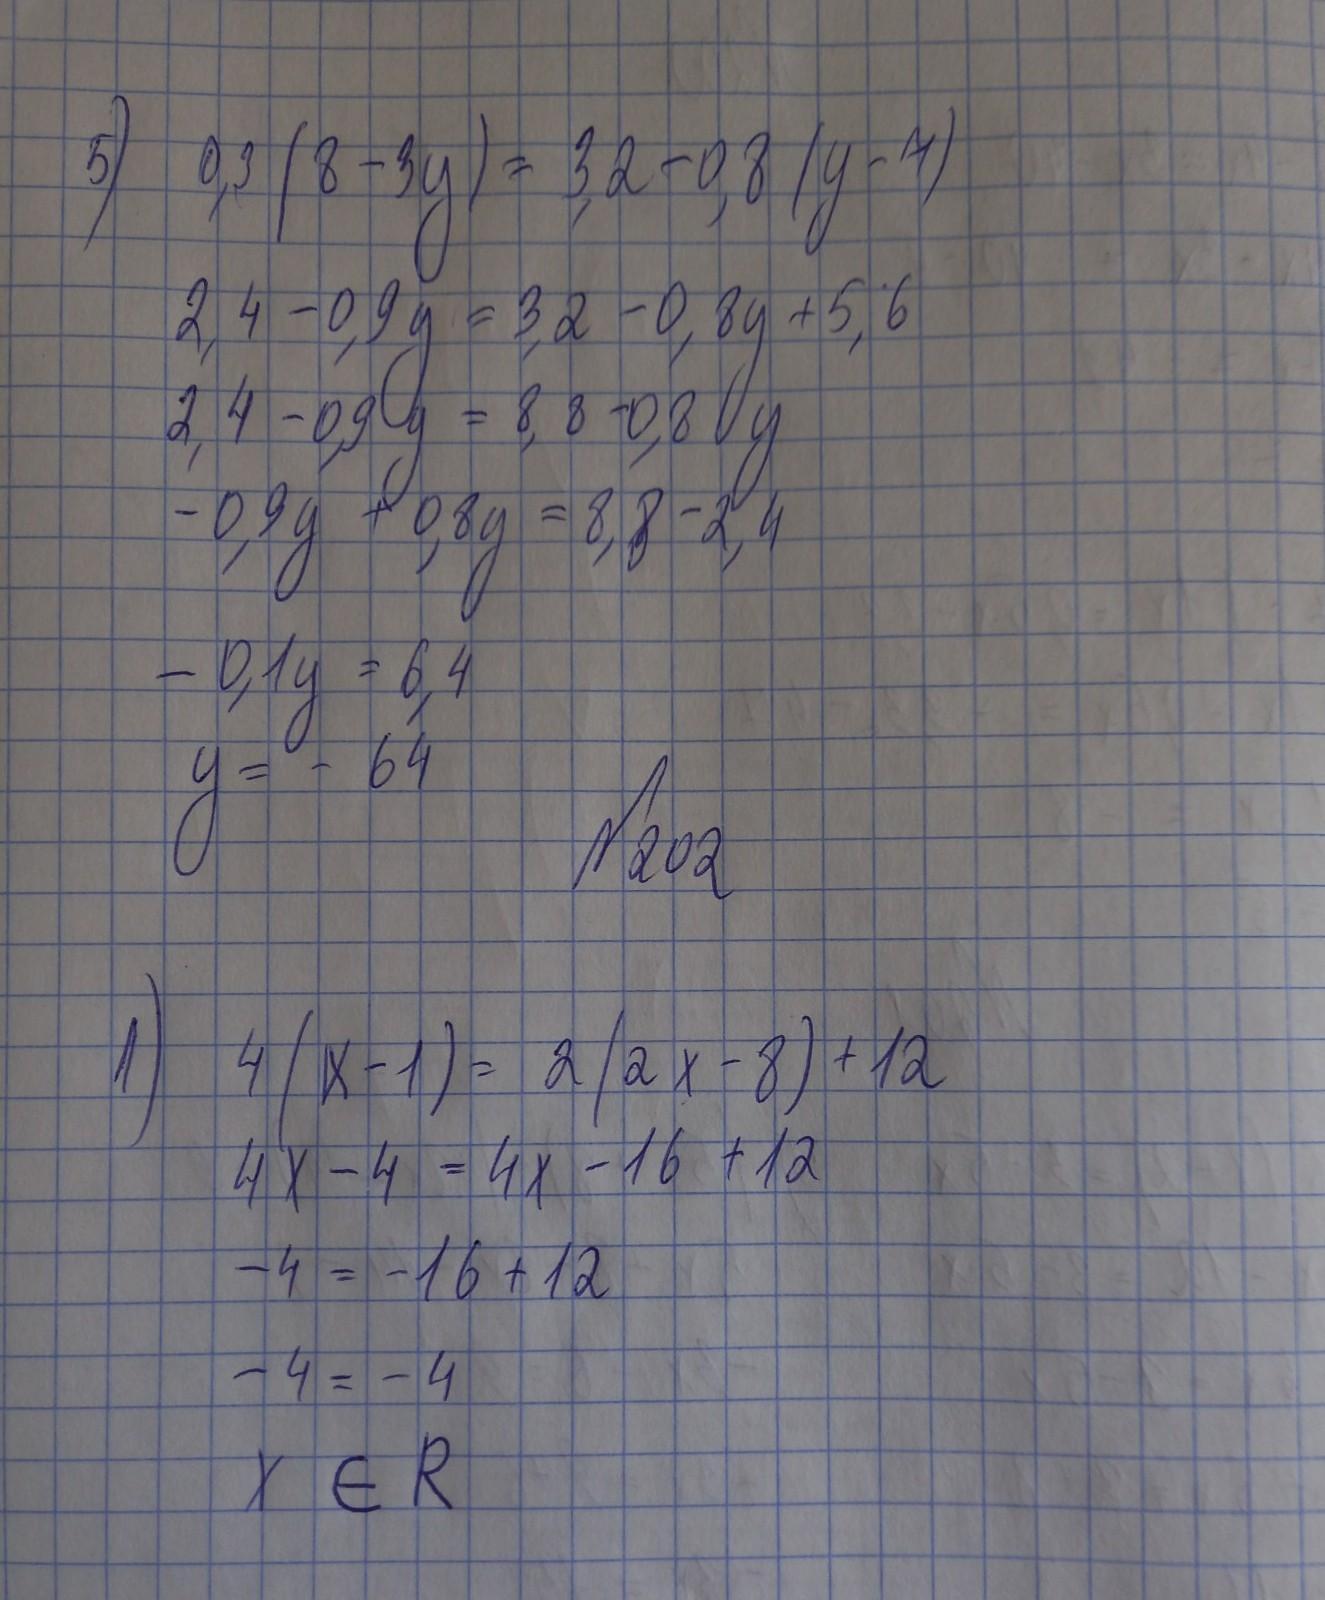 5) 0,3 (8 - 3y) = 3,2 - 0,8 (y - 7)
2,4 - 0,9y = 3,2 - 0,8y + 5,6
2,4 - 0,9y = 8,8 - 0,8y
- 0,9y + 0,8y = 8,8 - 2,4
- 0,1y = 6,4
y = - 64
N202
1) 4 (x - 1) = 2 (2x - 8) + 12
4x - 4 = 4x - 16 + 12
- 4 = - 16 + 12
- 4 = - 4
x ∈ R